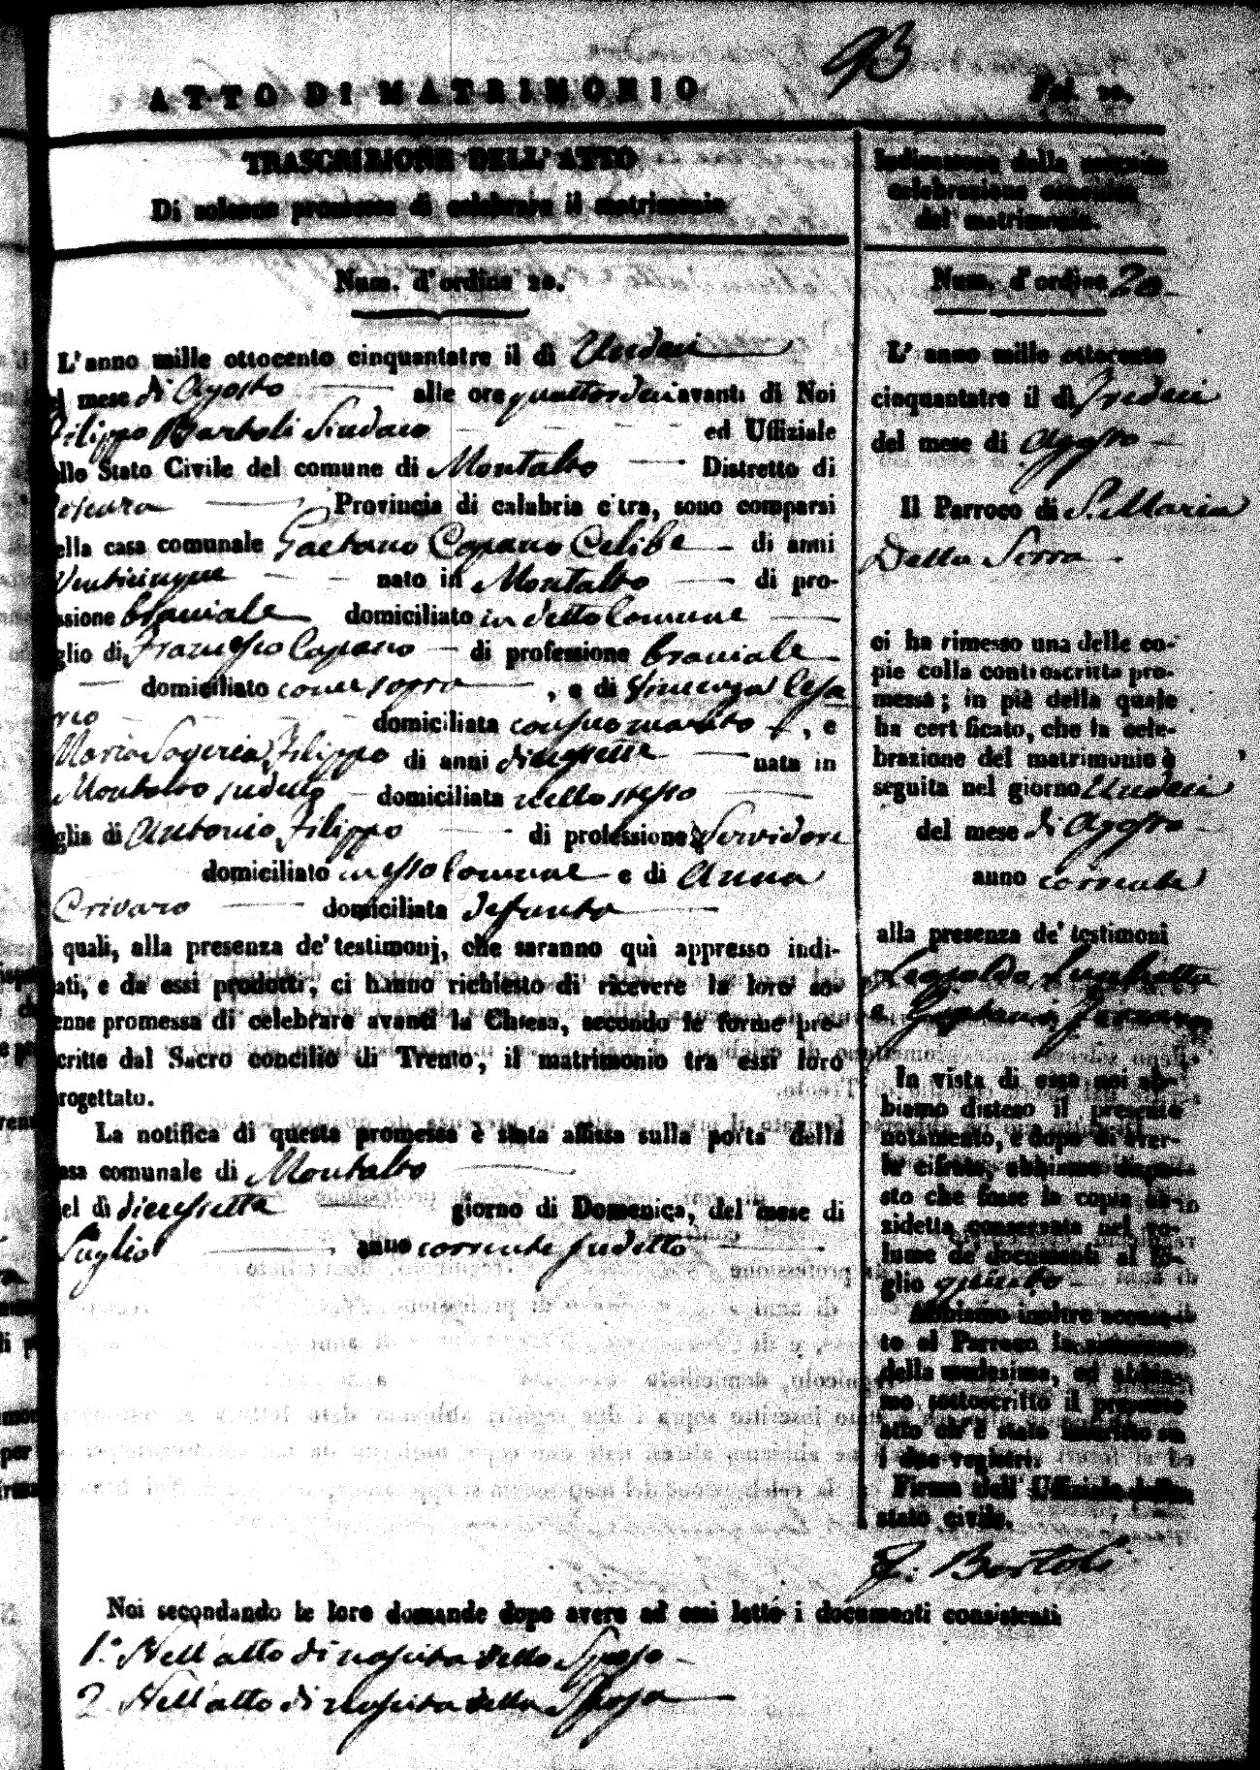 93
ATTO DI MATRIMONIO
Fol. 20.
TRASCRIZIONE DELL'ATTO
Di solenne promessa di celebrare il matrimonio
Num. d'ordine 20.
L'anno mille ottocento cinquantatre il dì Undeci
el mese di Agosto alle ore quattordeci avanti di Noi
Filippo Bartoli Sindaco ed Uffiziale
ello Stato Civile del comune di Montalto Distretto di
Provincia di calabria citra, sono comparsi
ella casa comunale Gaetano Capano Celibe di anni
Venticinque nato in Montalto di pro-
ssione braciale domiciliato in detto Comune
glio di Francesco Capano di professione braciale
domiciliato come sopra , e di Vincenza Cesa
rio domiciliata con suo marito , e
Maria Filippo di anni nata in
Montalto sudetto domiciliata nello stesso
glia di Antonio Filippo di professione Servidore
domiciliato in esso Comune e di Anna
Crivaro domiciliata defunta
quali, alla presenza de' testimonj, che saranno quì appresso indi-
ati, e da essi prodotti, ci hanno richiesto di ricevere la loro so-
enne promessa di celebrare avanti la Chiesa, secondo le forme pre-
critte dal Sacro concilio di Trento, il matrimonio tra essi loro
rogettato.
La notifica di questa promessa è stata affissa sulla porta della
asa comunale di Montalto
el dì diecisette giorno di Domenica, del mese di
Luglio anno corrente sudetto
Indicazione della seguita
celebrazione canonica
del matrimonio.
Num. d'ordine 20
L' anno mille ottocento
cinquantatre il dì Tredeci
del mese di Agosto
Il Parroco di S. Maria
Della Serra
ci ha rimesso una delle co-
pie colla controscritta pro-
messa; in piè della quale
ha certificato, che la cele-
brazione del matrimonio è
seguita nel giorno Undeci
del mese di Agosto
anno corrente
alla presenza de' testimoni
Leopoldo
e Gaetano
In vista di essa noi ab-
biamo disteso il presente
notamento, e dopo di aver-
la cifrata, abbiamo dispo-
sto che fosse la copia an-
zidetta conservata nel vo-
lume de' documenti al fo-
glio quinto
Abbiamo inoltre accusa-
to al Parroco la ricezione
della medesima, ed abbia-
mo sottoscritto il presente
atto ch'è stato inscritto su
i due registri.
Firma dell' Uffiziale dello
stato civile.
F. Bartoli
Noi secondando le loro domande dopo avere ad essi letto i documenti consistenti
1.° Nell'atto di nascita dello Sposo
2. Nell'atto di nascita della Sposa